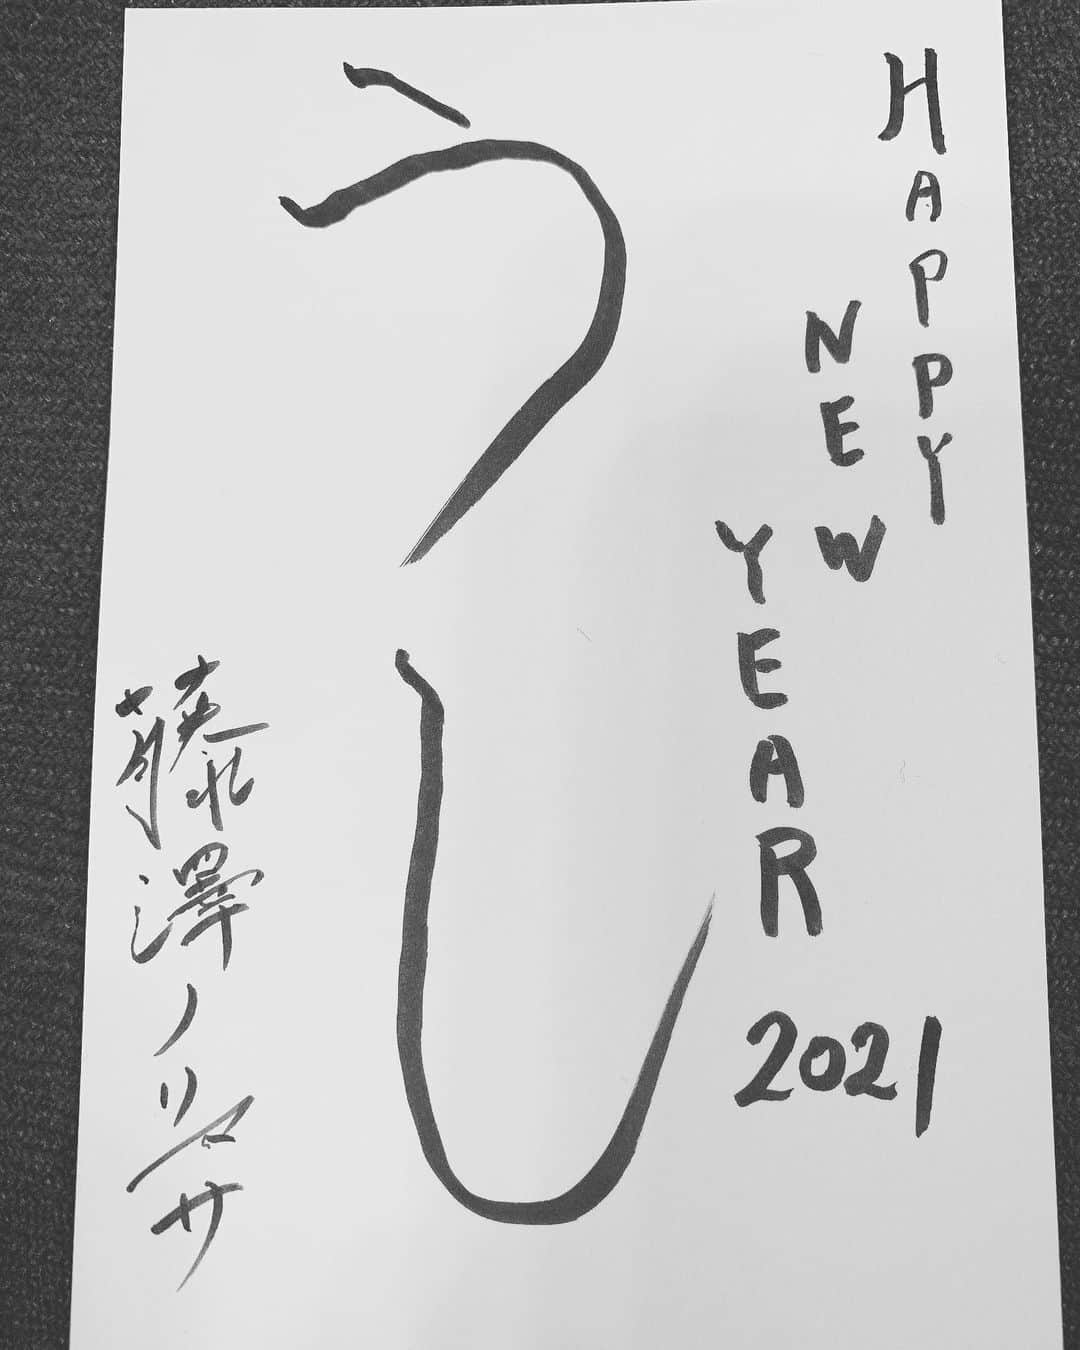 HAPPY
NEW
YEAR
2021
うし
藤澤ノリマサ